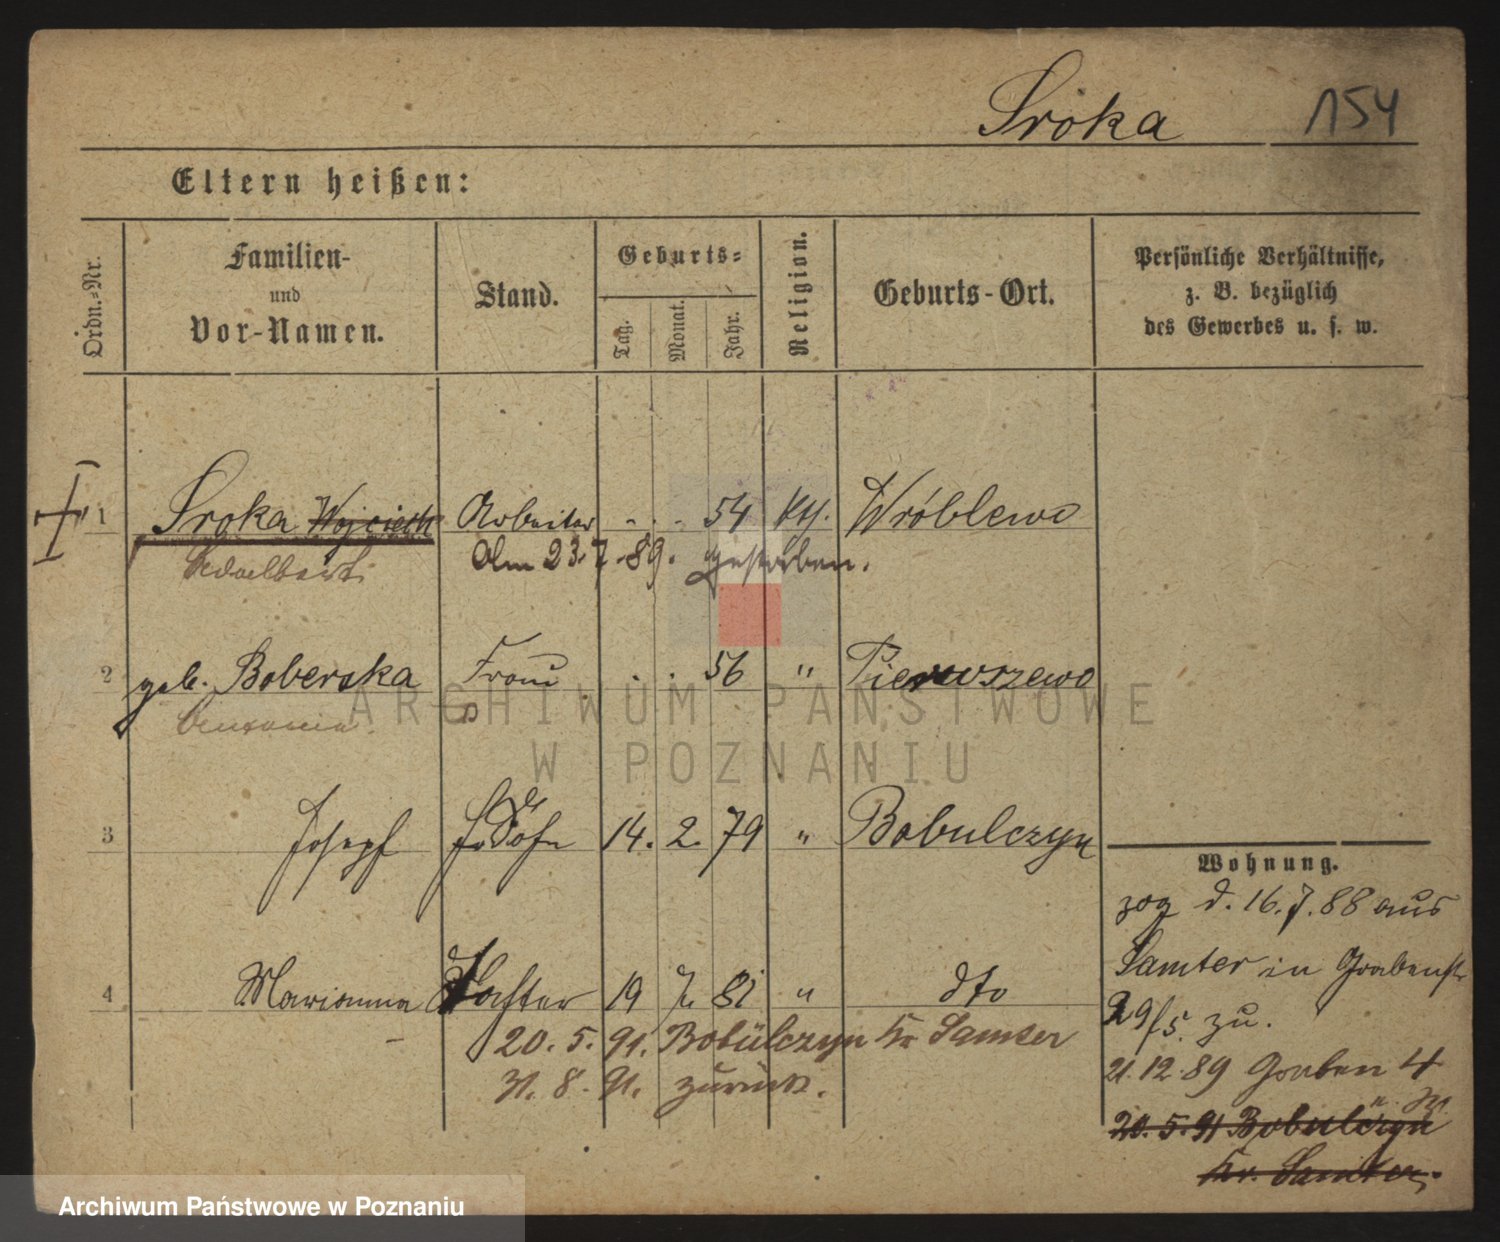 Sroka 154
Eltern heißen:
Ordn.-Nr.
Familien-
und
Vor-Namen.
Stand.
Geburts-
Tag.
Monat.
Jahr.
Religion.
Geburts-Ort.
Persönliche Verhältnisse,
z. B. bezüglich
des Gewerbes u. s. w.
1 Sroka Wojciech Arbeiter - . - 54 Kth. Wróblewo
Adalbert Am 23.7.89. gestorben.
2 geb. Boberska Frau . . 56 " Pierwszewo
Antonia
3 Joseph Sohn 14. 2. 79 " Bobulczyn
4 Marianna Tochter 19 7. 81 " dto
20. 5. 91. Bobulczyn Kr Samter
31. 8. 91. zurück.
Wohnung.
zog d. 16.7.88 aus
Samter in Grabenstr
29/5 zu.
21.12.89 Graben 4
20. 5. 91 Bobulczyn
Kr. Samter.
ARCHIWUM PAŃSTWOWE
W POZNANIU
Archiwum Państwowe w Poznaniu